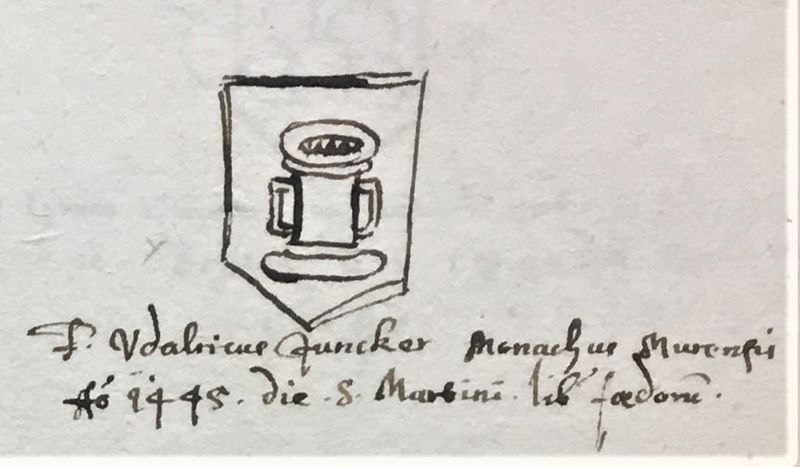 F. Udalricus Juncker Monachus Murensis
Aō 1445. die . S. Martini . lib' fœdorū .